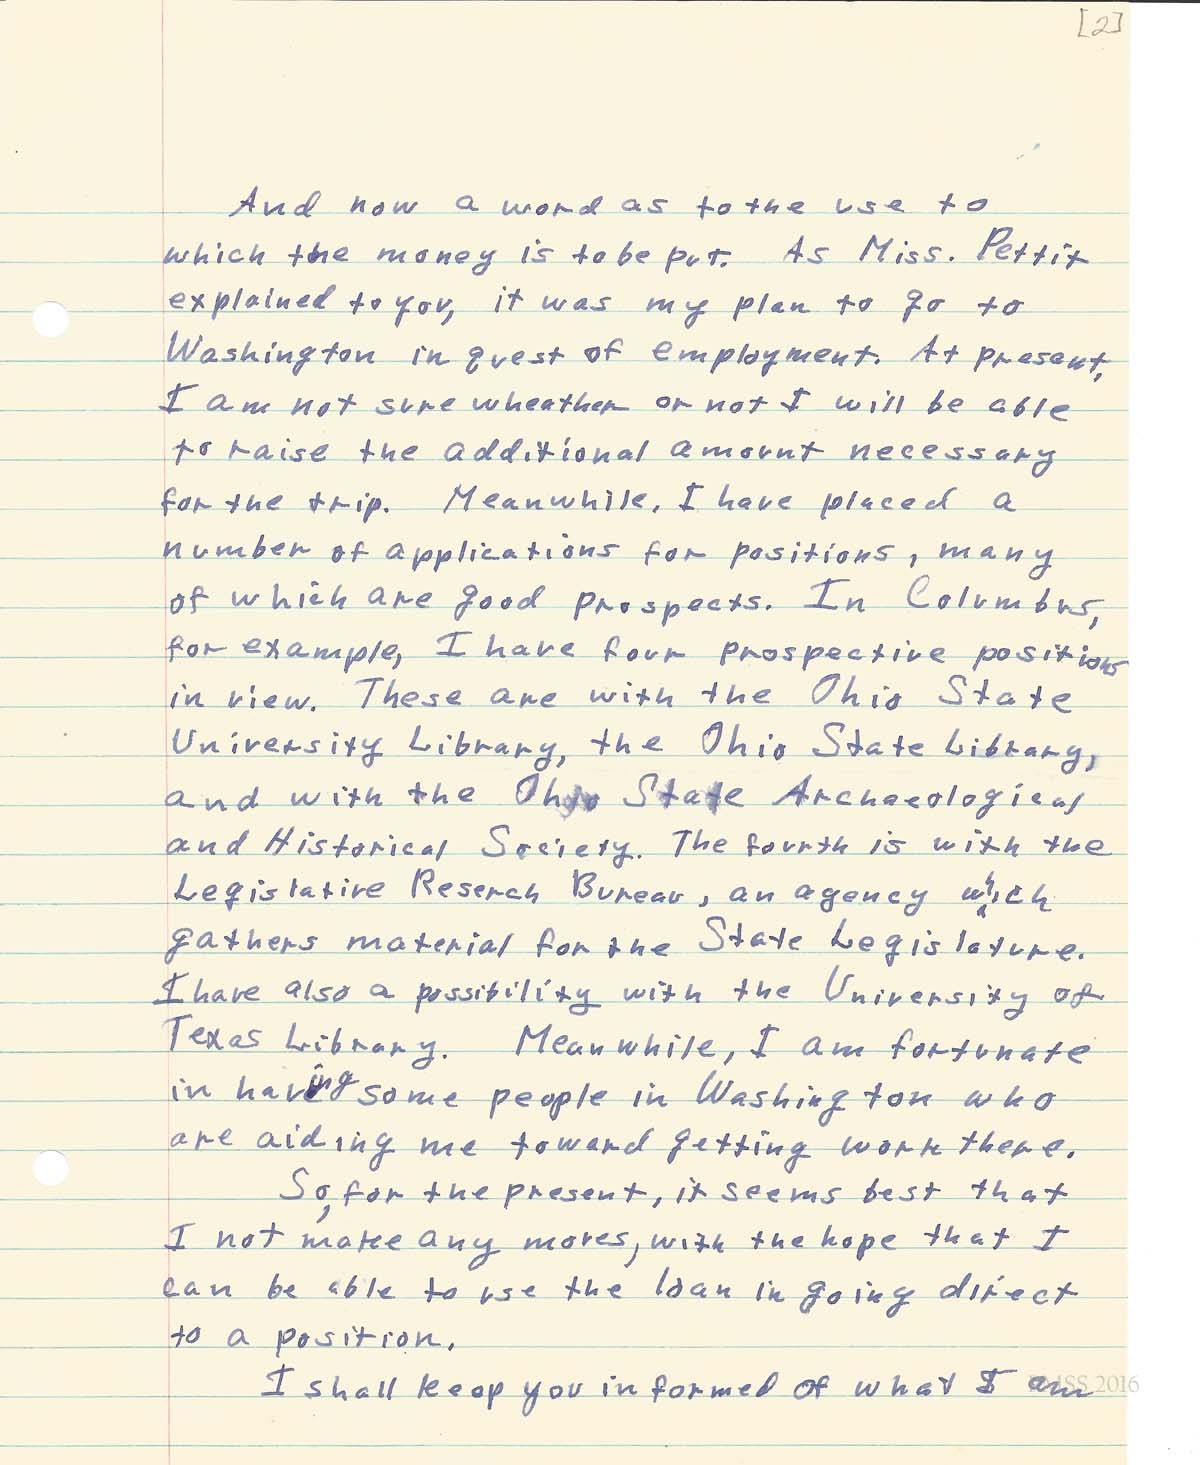 [2]
And now a word as to the use to
which the money is to be put. As Miss. Pettit
explained to you, it was my plan to go to
Washington in quest of employment. At present,
I am not sure wheather or not I will be able
to raise the additional amount necessary
for the trip. Meanwhile, I have placed a
number of applications for positions, many
of which are good prospects. In Columbus,
for example, I have four prospective positions
in view. These are with the Ohio State
University Library, the Ohio State Library,
and with the Ohio State Archaeological
and Historical Society. The fourth is with the
Legislative Reserch Bureau, an agency which
gathers material for the State Legislature.
I have also a possibility with the University of
Texas Library. Meanwhile, I am fortunate
in having some people in Washington who
are aiding me toward getting work there.
So, for the present, it seems best that
I not make any moves, with the hope that I
can be able to use the loan in going direct
to a position.
I shall keep you informed of what I am
2016